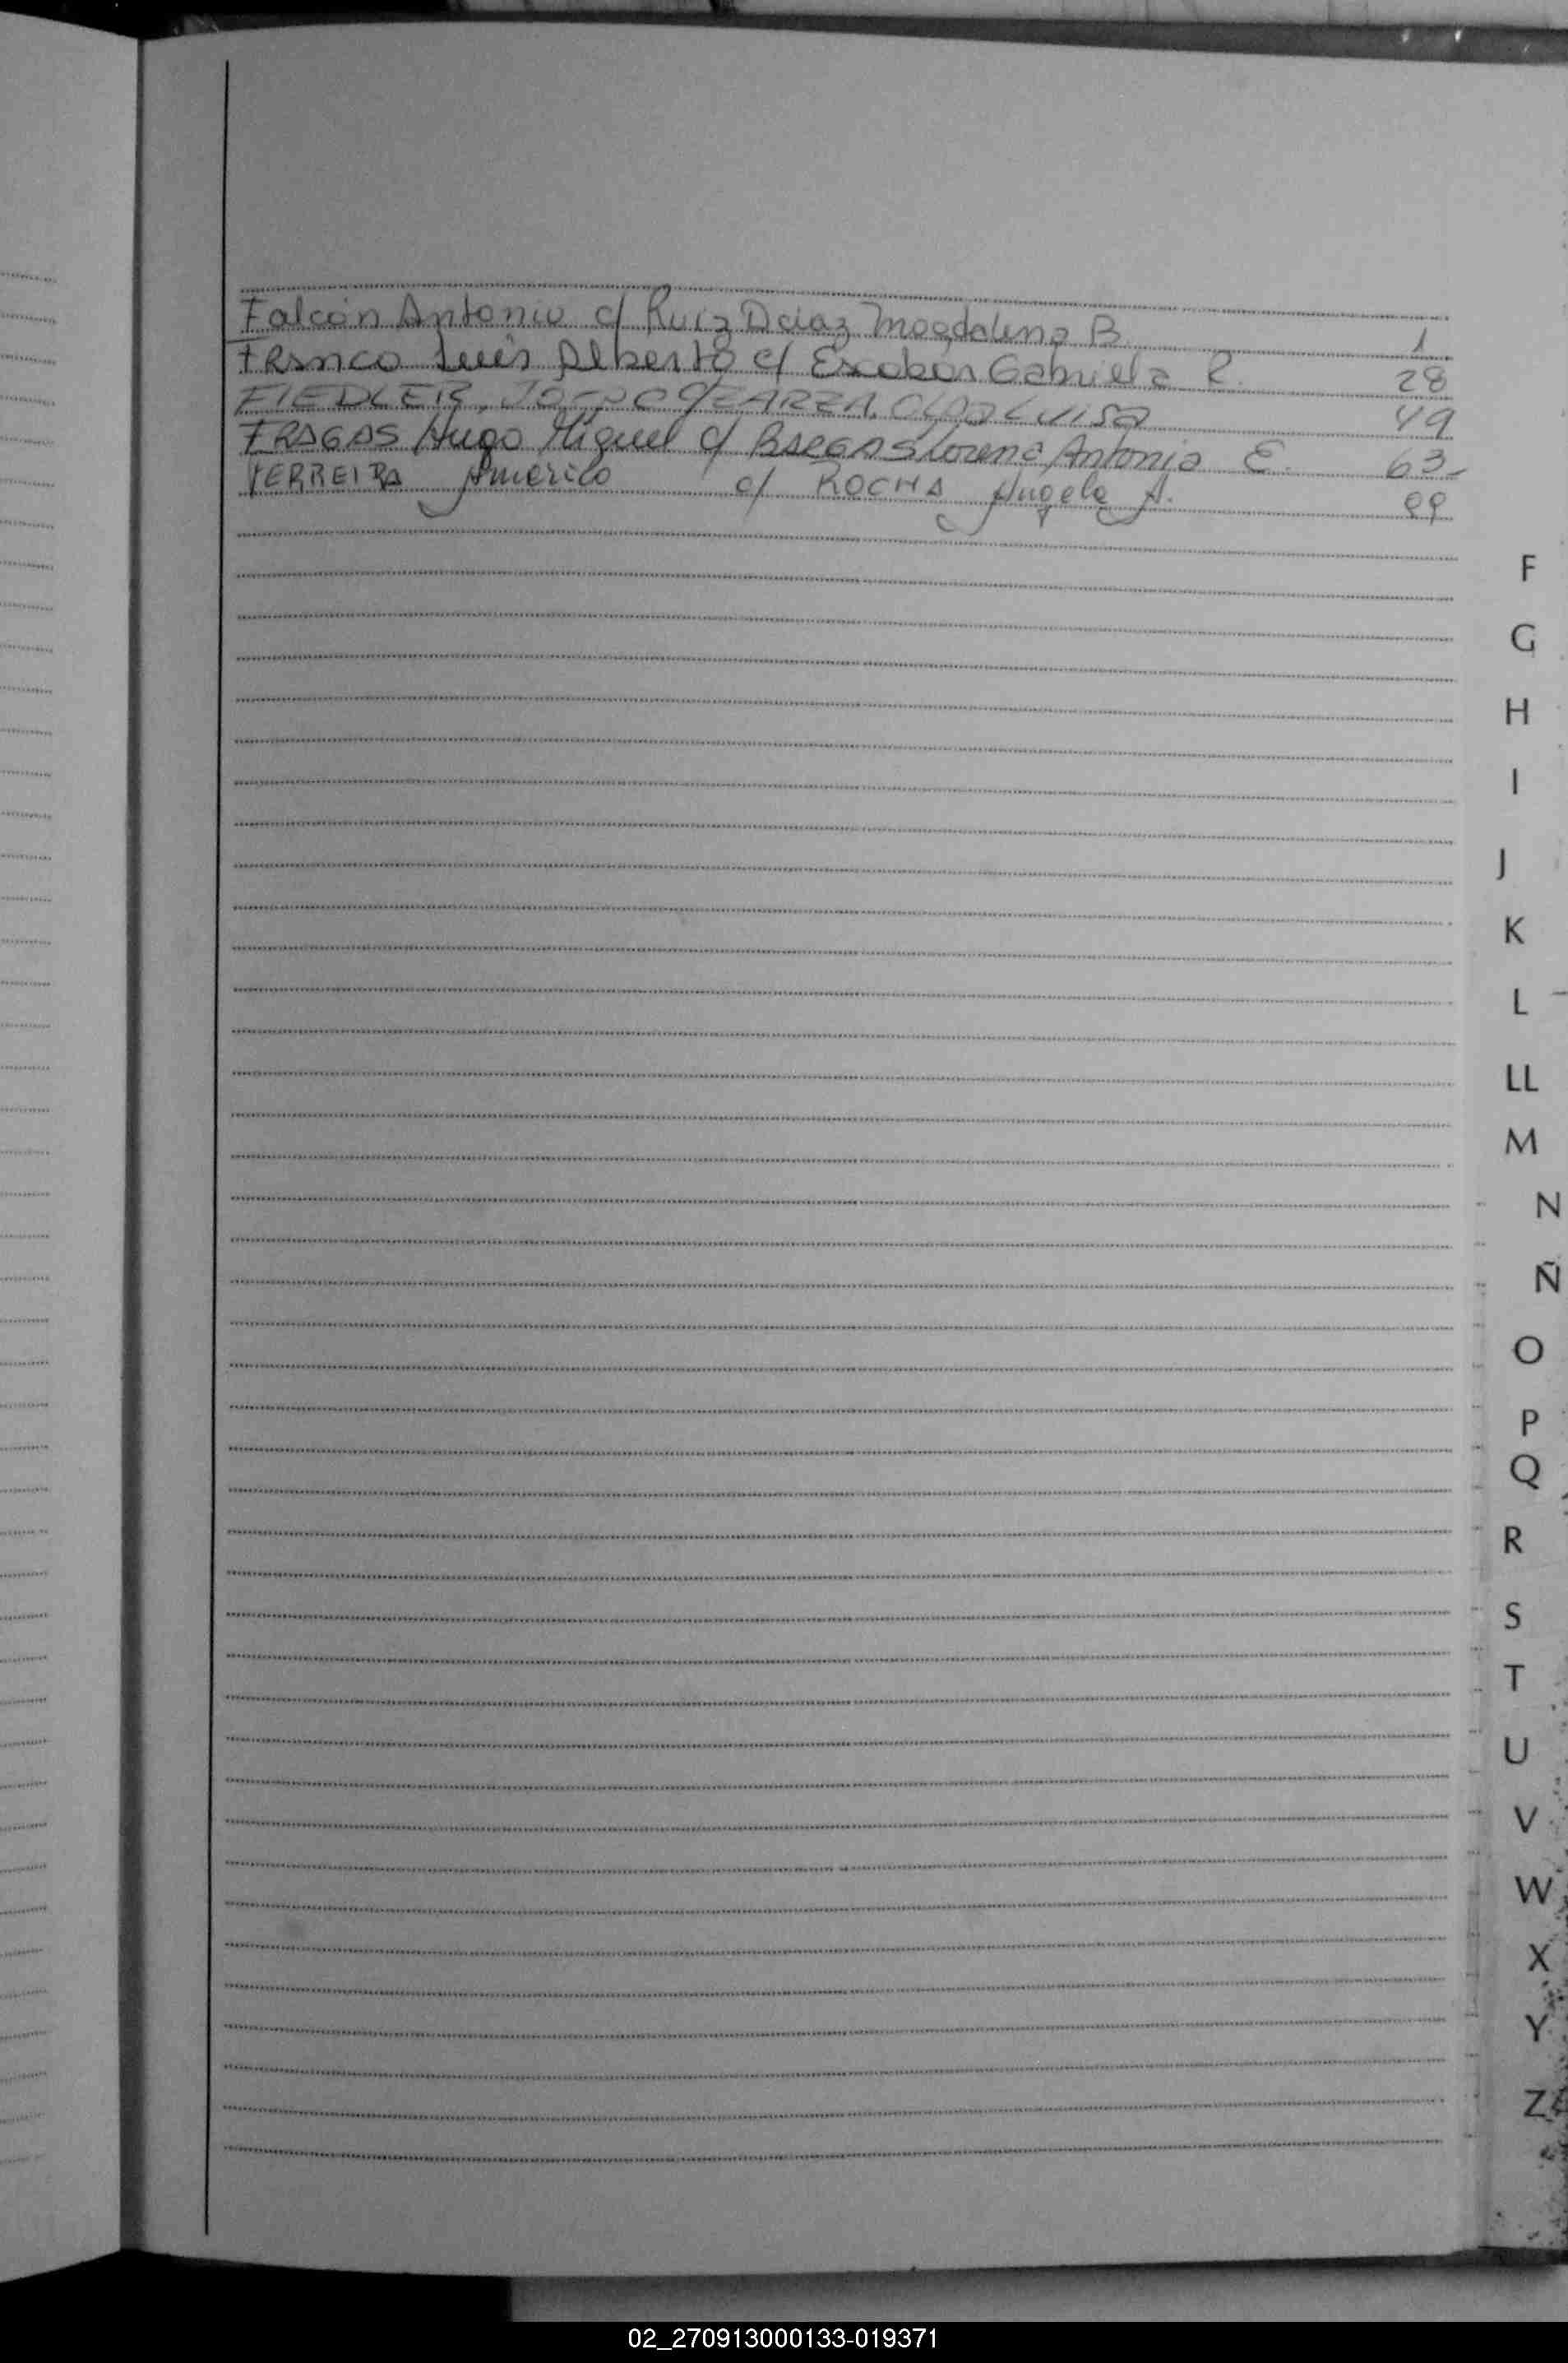 Falcón Antonio c/ Ruiz Daiaz Magdalena B. 1
FRANCO Luis Alberto c/ Escobar Gabriela R. 28
FIEDLER, c/ OLGA LUISA 49
FRAGAS Hugo Miguel c/ BARGAS Lorena Antonia E. 63
FERREIRA Americo c/ ROCHA Angela A. 99
F
G
H
I
J
K
L
LL
M
N
Ñ
O
P
Q
R
S
T
U
V
W
X
Y
Z
02_270913000133-019371